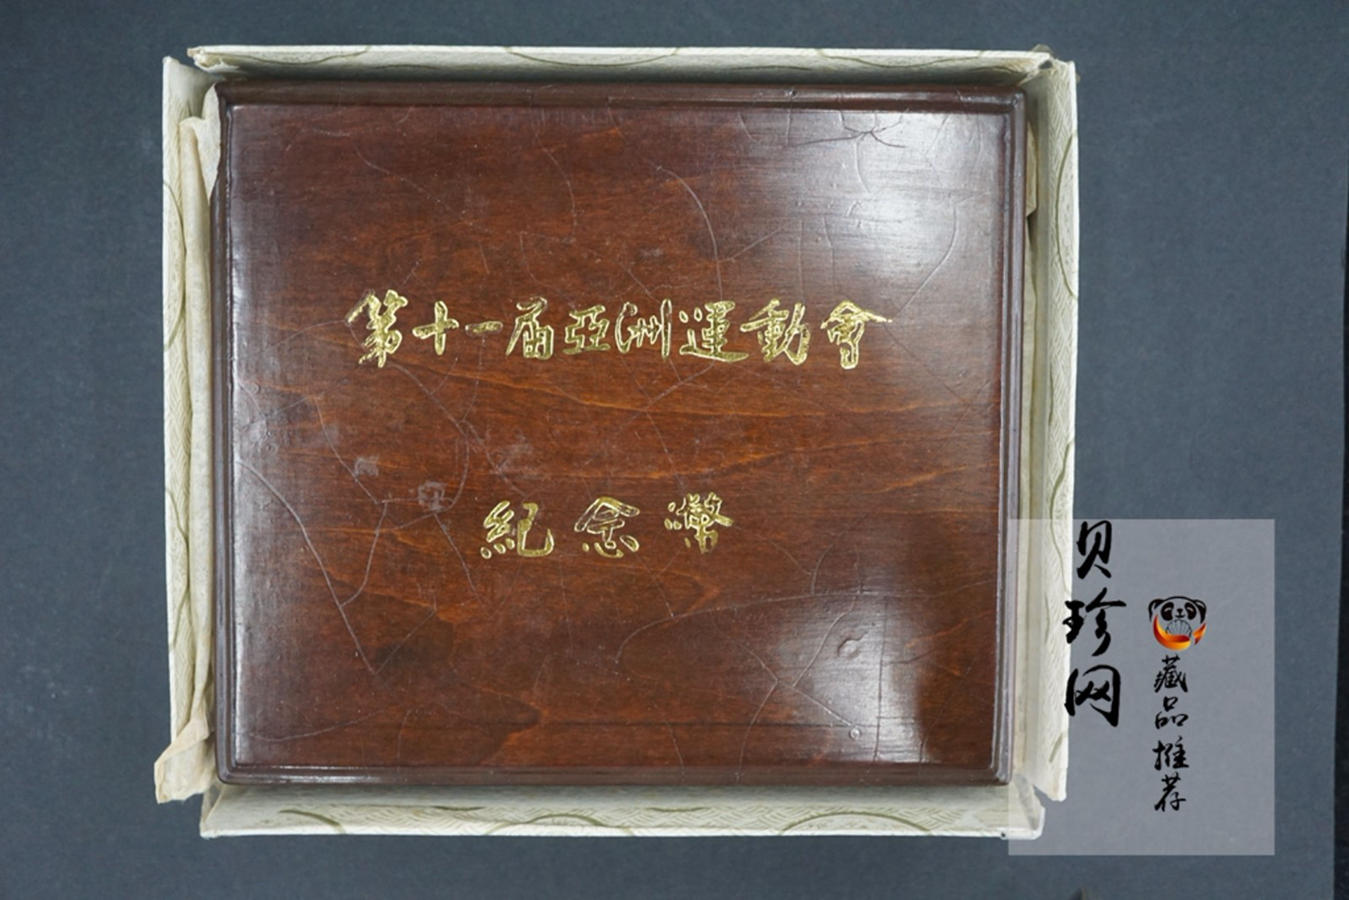 第十一届亞洲運動會
紀念幣
贝珍网
藏品推荐